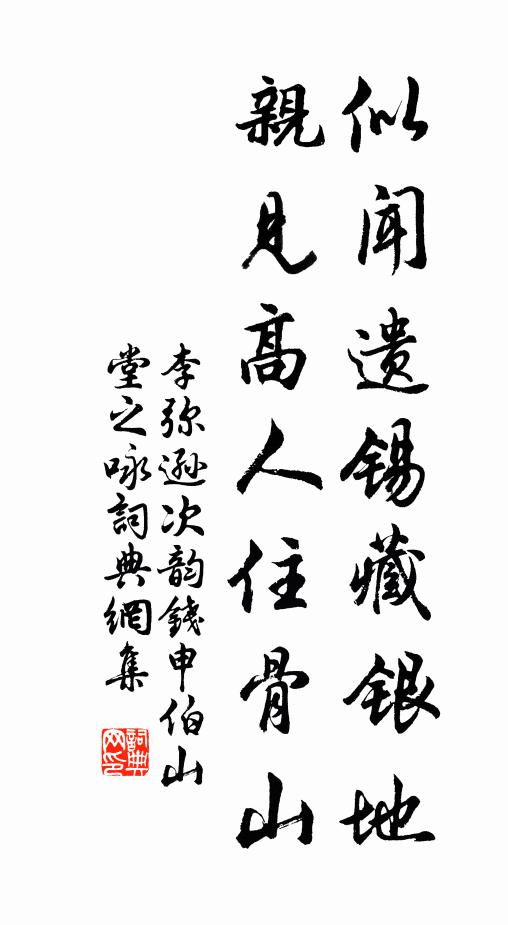 似闻遗锡藏银地
親見高人住骨山
李弥遜次韵錢申伯山
堂之咏詞典網集
詞典网印